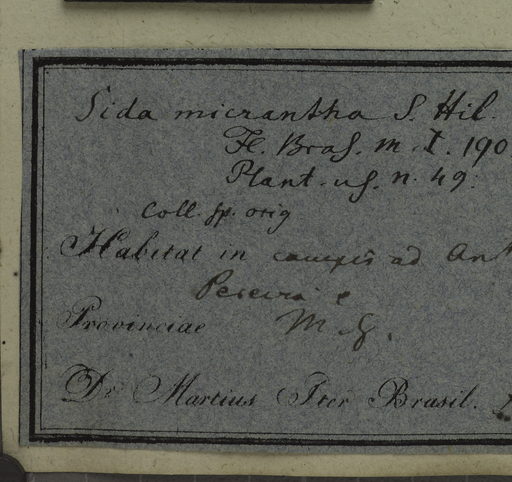 Sida micrantha S. Hil.
Fl. Bras. m. I. 190
Plant. us. n. 49.
Coll. sp. orig
Habitat in campis ad Ant
Pereira e
Provinciae M. G.
Dr. Martius Iter Brasil.